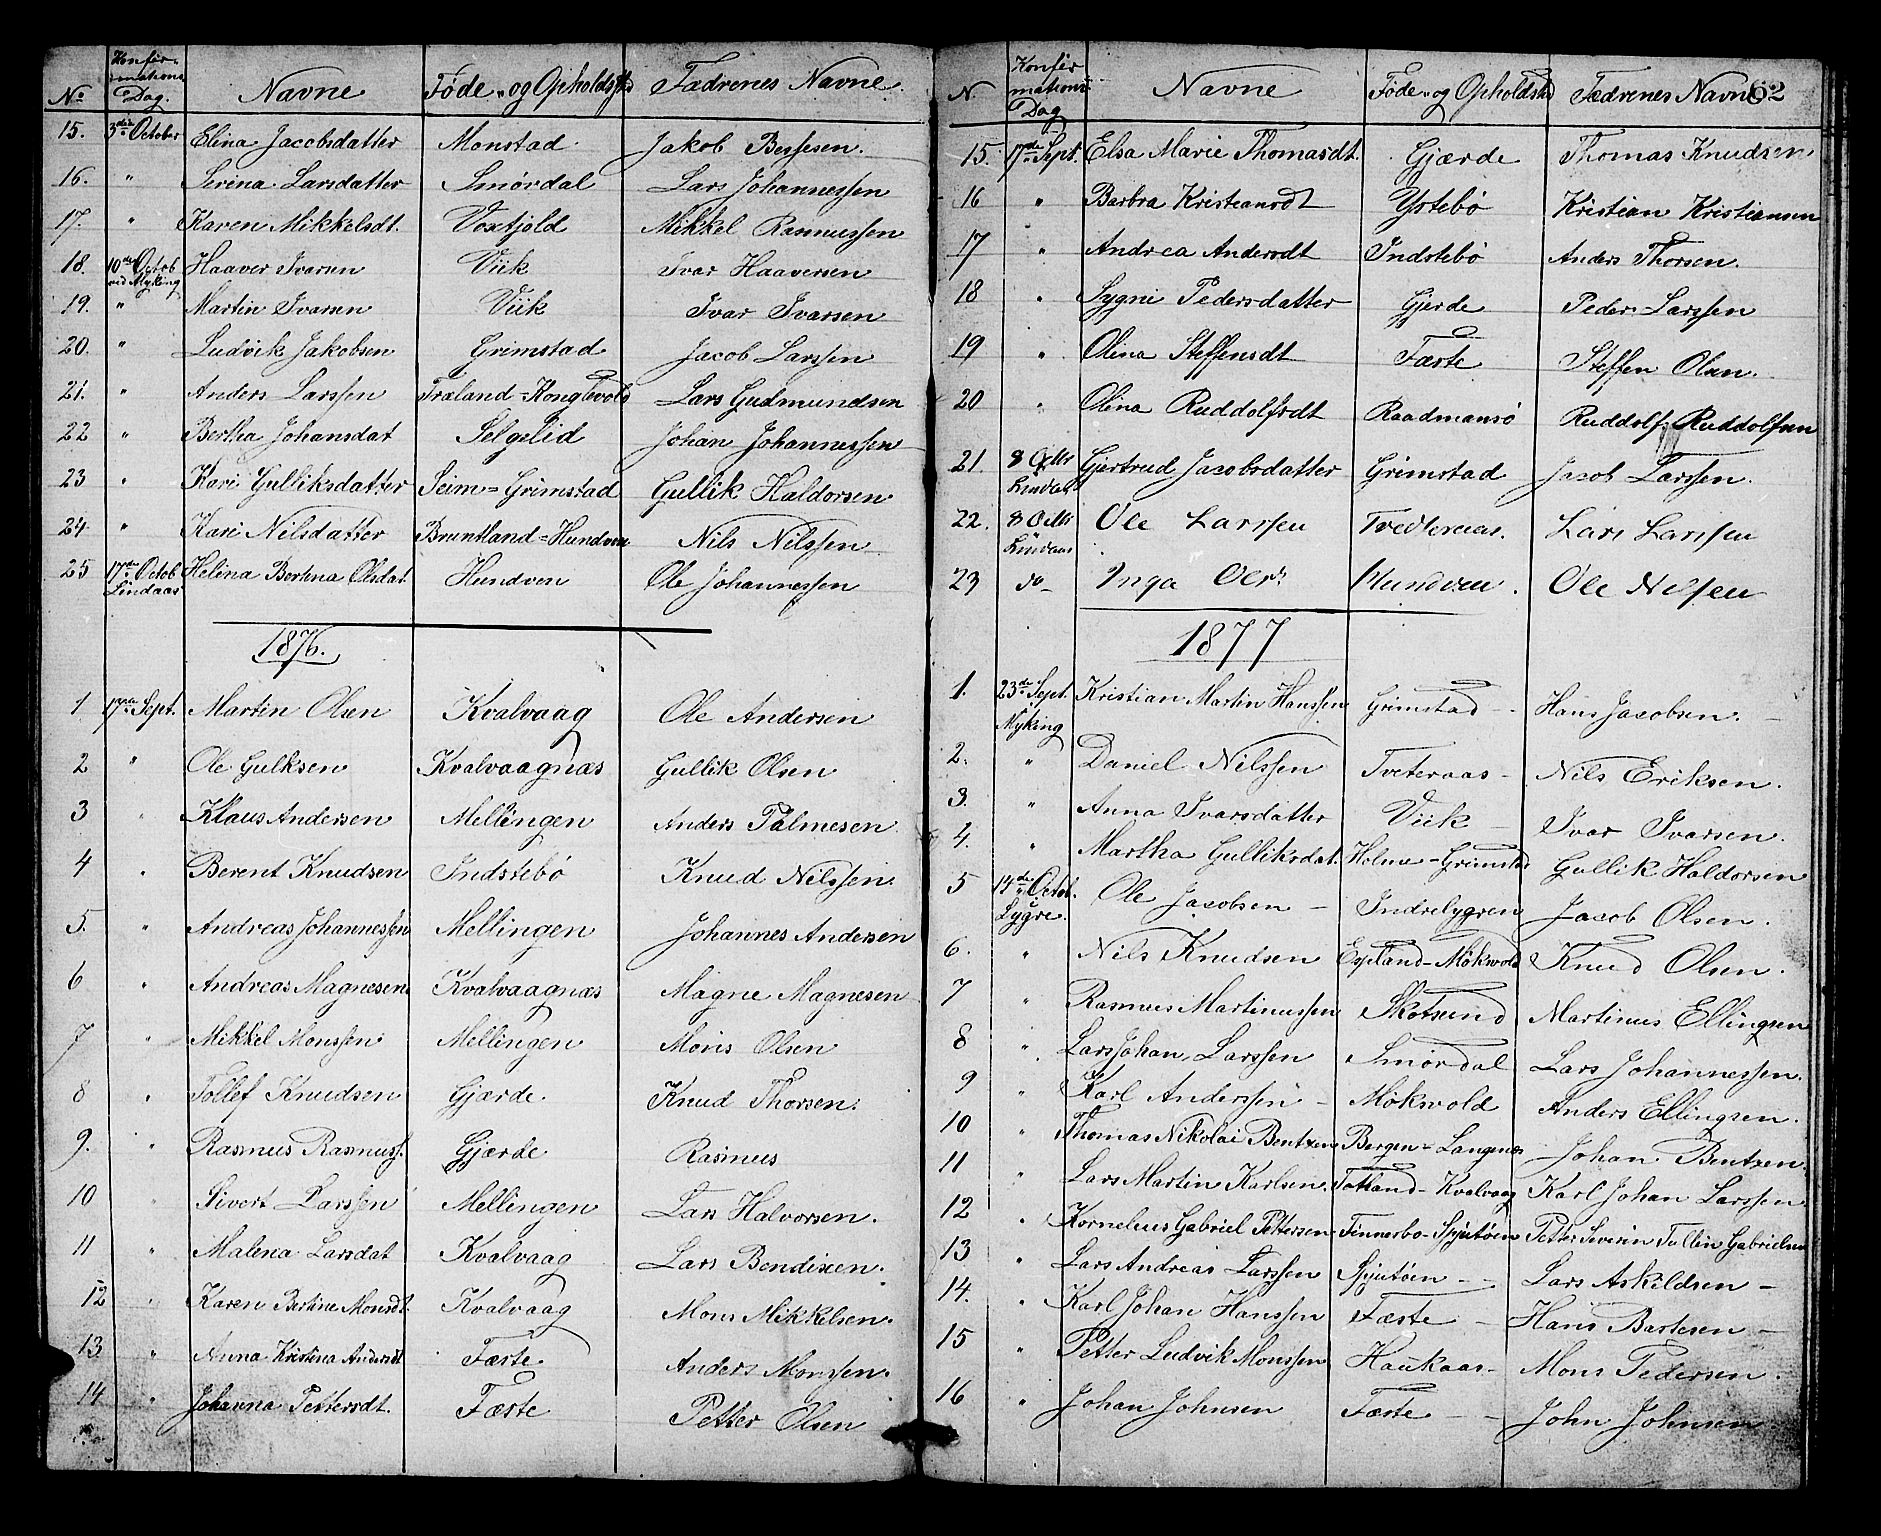 No Konfirmations Dag. Navne Føde- og Opholdsted Fædrenes Navne.
15. 3die October Elina Jacobsdatter Monstad Jakob Bessesen.
16. " Serina Larsdatter Smørdal Lars Johannessen
17. " Karen Mikkelsdt. Voxtjold Mikkel Rasmussen
18. 10de Octob ved Myking Haaver Ivarsen Viik Ivar Haaversen
19. " Martin Ivarsen Viik Ivar Ivarsen
20. " Ludvik Jakobsen Grimstad Jacob Larssen
21. " Anders Larssen Træland=Konglevold Lars Gudmundsen
22 " Bertha Johansdat Selgelid Johan Johannessen
23 " Kari Gulliksdatter Seim=Grimstad Gullik Haldorsen
24. " Kari Nilsdatter Bruntland=Hundven Nils Nilssen
25 17de Octob Lindaas Helina Bertina Olsdat Hundven Ole Johannessen
1876.
1 17de Sept. Martin Olsen Kvalvaag Ole Andersen
2 " Ole Gulksen Kvalvaagnæs Gullik Olsen
3 " Klaus Andersen Mellingen Anders Palmesen
4 " Berent Knudsen Indstebø Knud Nilssen.
5. " Andreas Johannessen Mellingen Johannes Andersen
6 " Andreas Magnesen Kvalvaagnæs Magne Magnesen
7 " Mikkel Monssen Mellingen Mons Olsen
8 " Tollef Knudsen Gjærde. Knud Thorsen.
9. " Rasmus Rasmuss. Gjærde Rasmus
10 " Sivert Larssen Mellingen Lars Halvorsen.
11 " Malena Larsdat Kvalvaag Lars Bendixen.
12 " Karen Bertine Monsdt. Kvalvaag Mons Mikkelsen.
13 " Anna Kristina Andersdt Fæste. Anders Monssen.
14 " Johanna Pettersdt. Fæste Petter Olsen
N Konfirmations Dag Navne Føde- og Opholdsted Fædrenes Navne 62
15. 17de Sept. Elsa Marie Thomasdt. Gjærde Thomas Knudsen
16 " Barbra Kristiansdt Ystebø Kristian Kristiansen
17 " Andrea Andersdt Indstebø Anders Thorsen.
18 " Sygni Pedersdatter Gjerde Peder Larssen
19 " Olina Steffensdt Fæste Steffen Olsen.
20 " Olina Ruddolfsdt Raadmansø Ruddolf Ruddolfsen
21 8 Octbr Lindaas Gjertrud Jacobsdatter Grimstad Jacob Larssen.
22. 8 Octbr Lindaas Ole Larssen Tvedteraas. Lars Larssen
23 do Inga Olsdt Hundven. Ole Nilsen
1877
1. 23de Sept. Myking Kristian Martin Hanssen Grimstad - Hans Jacobsen. -
2. " Daniel Nilssen Tveteraas - Nils Eriksen.
3. " Anna Ivarsdatter Viik - Ivar Ivarsen.
4. " Martha Gulliksdat. Holme=Grimstad Gullik Haldorsen
5 14de Octob. Lygre. Ole Jacobsen - Indrelygren Jacob Olsen.
6. " Nils Knudsen Espeland-Mokvold Knud Olsen.
7 " Rasmus Martinussen Skotsund Martinus Ellingsen
8 " Lars Johan Larssen Smørdal Lars Johannessen.
9 " Karl Anderssen - Mokvold Anders Ellingsen.
10 " Thomas Nikolai Bentzen Bergen=Langenæs Johan Bentzen.
11 " Lars Martin Karlsen. Totland-Kvalvaag Karl Johan Larssen
12 " Kornelius Gabriel Pettersen- Finnerbo-Spjutøen Petter Severin Tullin Gabrielsen
13 " Lars Andreas Larssen Spjutøen - Lars Askildsen -
14. " Karl Johan Hanssen Fæste - Hans Bartesen -
15 " Petter Ludvik Monssen Haukaas- Mons Pedersen.
16 " Johan Johnsen Fæste - - John Johnsen